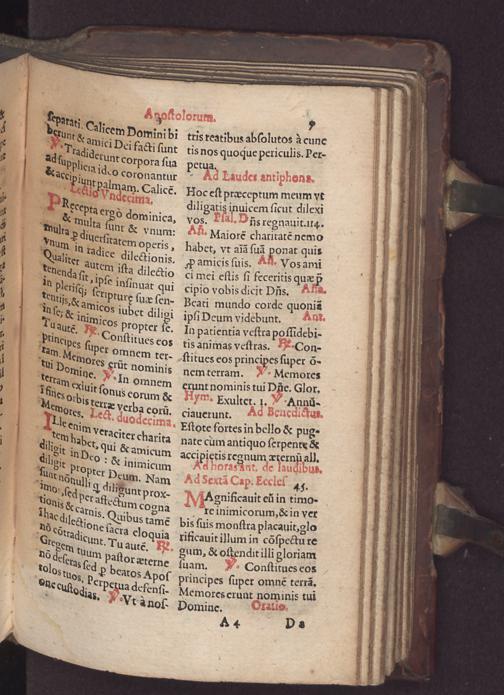 Apostolorum.
9
separati. Calicem Domini bi
berunt & amici Dei facti sunt
℣. Tradiderunt corpora sua
ad supplicia, ido coronantur
& accipiunt palmam. Calicē.
Lectio Vndecima.
PRecepta ergò dominica,
& multa sunt & vnum:
multa ꝓ diuersitatem operis,
vnum in radice dilectionis.
Qualiter autem ista dilectio
tenenda sit, ipse insinuat qui
in plerisq; scripturę suæ sen-
tentijs, & amicos iubet diligi
in se, & inimicos propter se.
Tu autē. ℟. Constitues eos
principes super omnem ter-
ram. Memores erūt nominis
tui Domine. ℣. In omnem
terram exiuit sonus eorum &
ī fines orbis terræ verba eorū.
Memores. Lect. duodecima.
ILle enim veraciter charita
tem habet, qui & amicum
diligit in Deo : & inimicum
diligit propter Deum. Nam
sunt nōnulli q diligunt prox-
imo, sed per affectum cogna
tionis & carnis. Quibus tamē
ī hac dilectione sacra eloquia
nō cōtradicunt. Tu autē. ℟.
Gregem tuum pastor æterne
nō deseras sed ꝑ beatos Apos
tolos tuos, Perpetua defensi-
one custodias. ℣. Vt à nos-
tris reatibus absolutos à cunc
tis nos quoque periculis. Per-
petua.
Ad Laudes antiphona.
Hoc est præceptum meum vt
diligatis inuicem sicut dilexi
vos. Psal. Dñs regnauit. 114.
Añ. Maiorē charitatē nemo
habet, vt aīā suā ponat quis
ꝓ amicis suis. Añ. Vos ami
ci mei estis si feceritis quæ ꝑ
cipio vobis dicit Dñs. Aña.
Beati mundo corde quoniā
ipsi Deum videbunt. Ant.
In patientia vestra possidebi-
tis animas vestras. ℟. Con-
stitues eos principes super ō-
nem terram. ℣. Memores
erunt nominis tui Dñe. Glor.
Hym. Exultet. 1. ℣. Annū-
ciauerunt. Ad Benedictus.
Estote fortes in bello & pug-
nate cùm antiquo serpente &
accipietis regnum æternū all.
Ad horas ant. de laudibus.
Ad Sextā Cap. Eccles
45.
MAgnificauit eū in timo-
re inimicorum, & in ver
bis suis monstra placauit, glo
rificauit illum in cōspectu re
gum, & ostendit illi gloriam
suam. ℣. Constitues eos
principes super omnē terrā.
Memores erunt nominis tui
Domine. Oratio.
A 4 Da